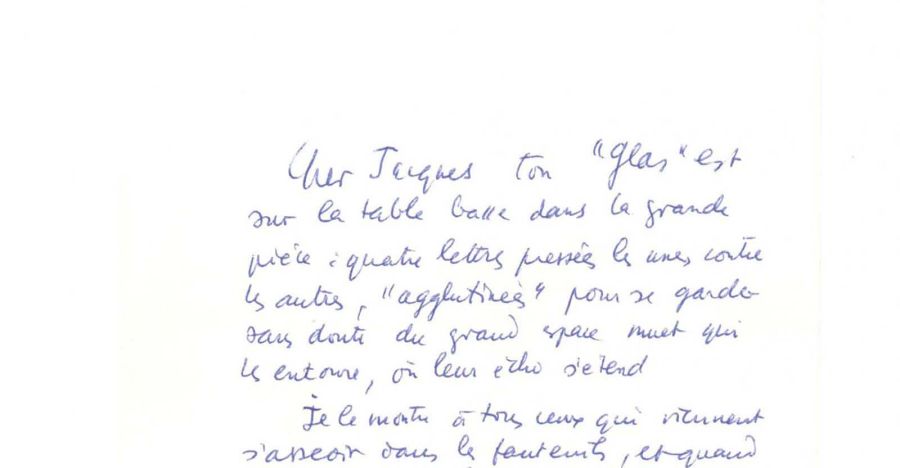 Cher Jacques ton "glas" est
sur la table basse dans la grande
pièce : quatre lettres pressées les unes contre
les autres, "agglutinées" pour se garder
sans doute du grand espace muet qui
les entoure, où leur écho s'étend
Je le montre à tous ceux qui viennent
s'asseoir dans les fauteuils, et quand